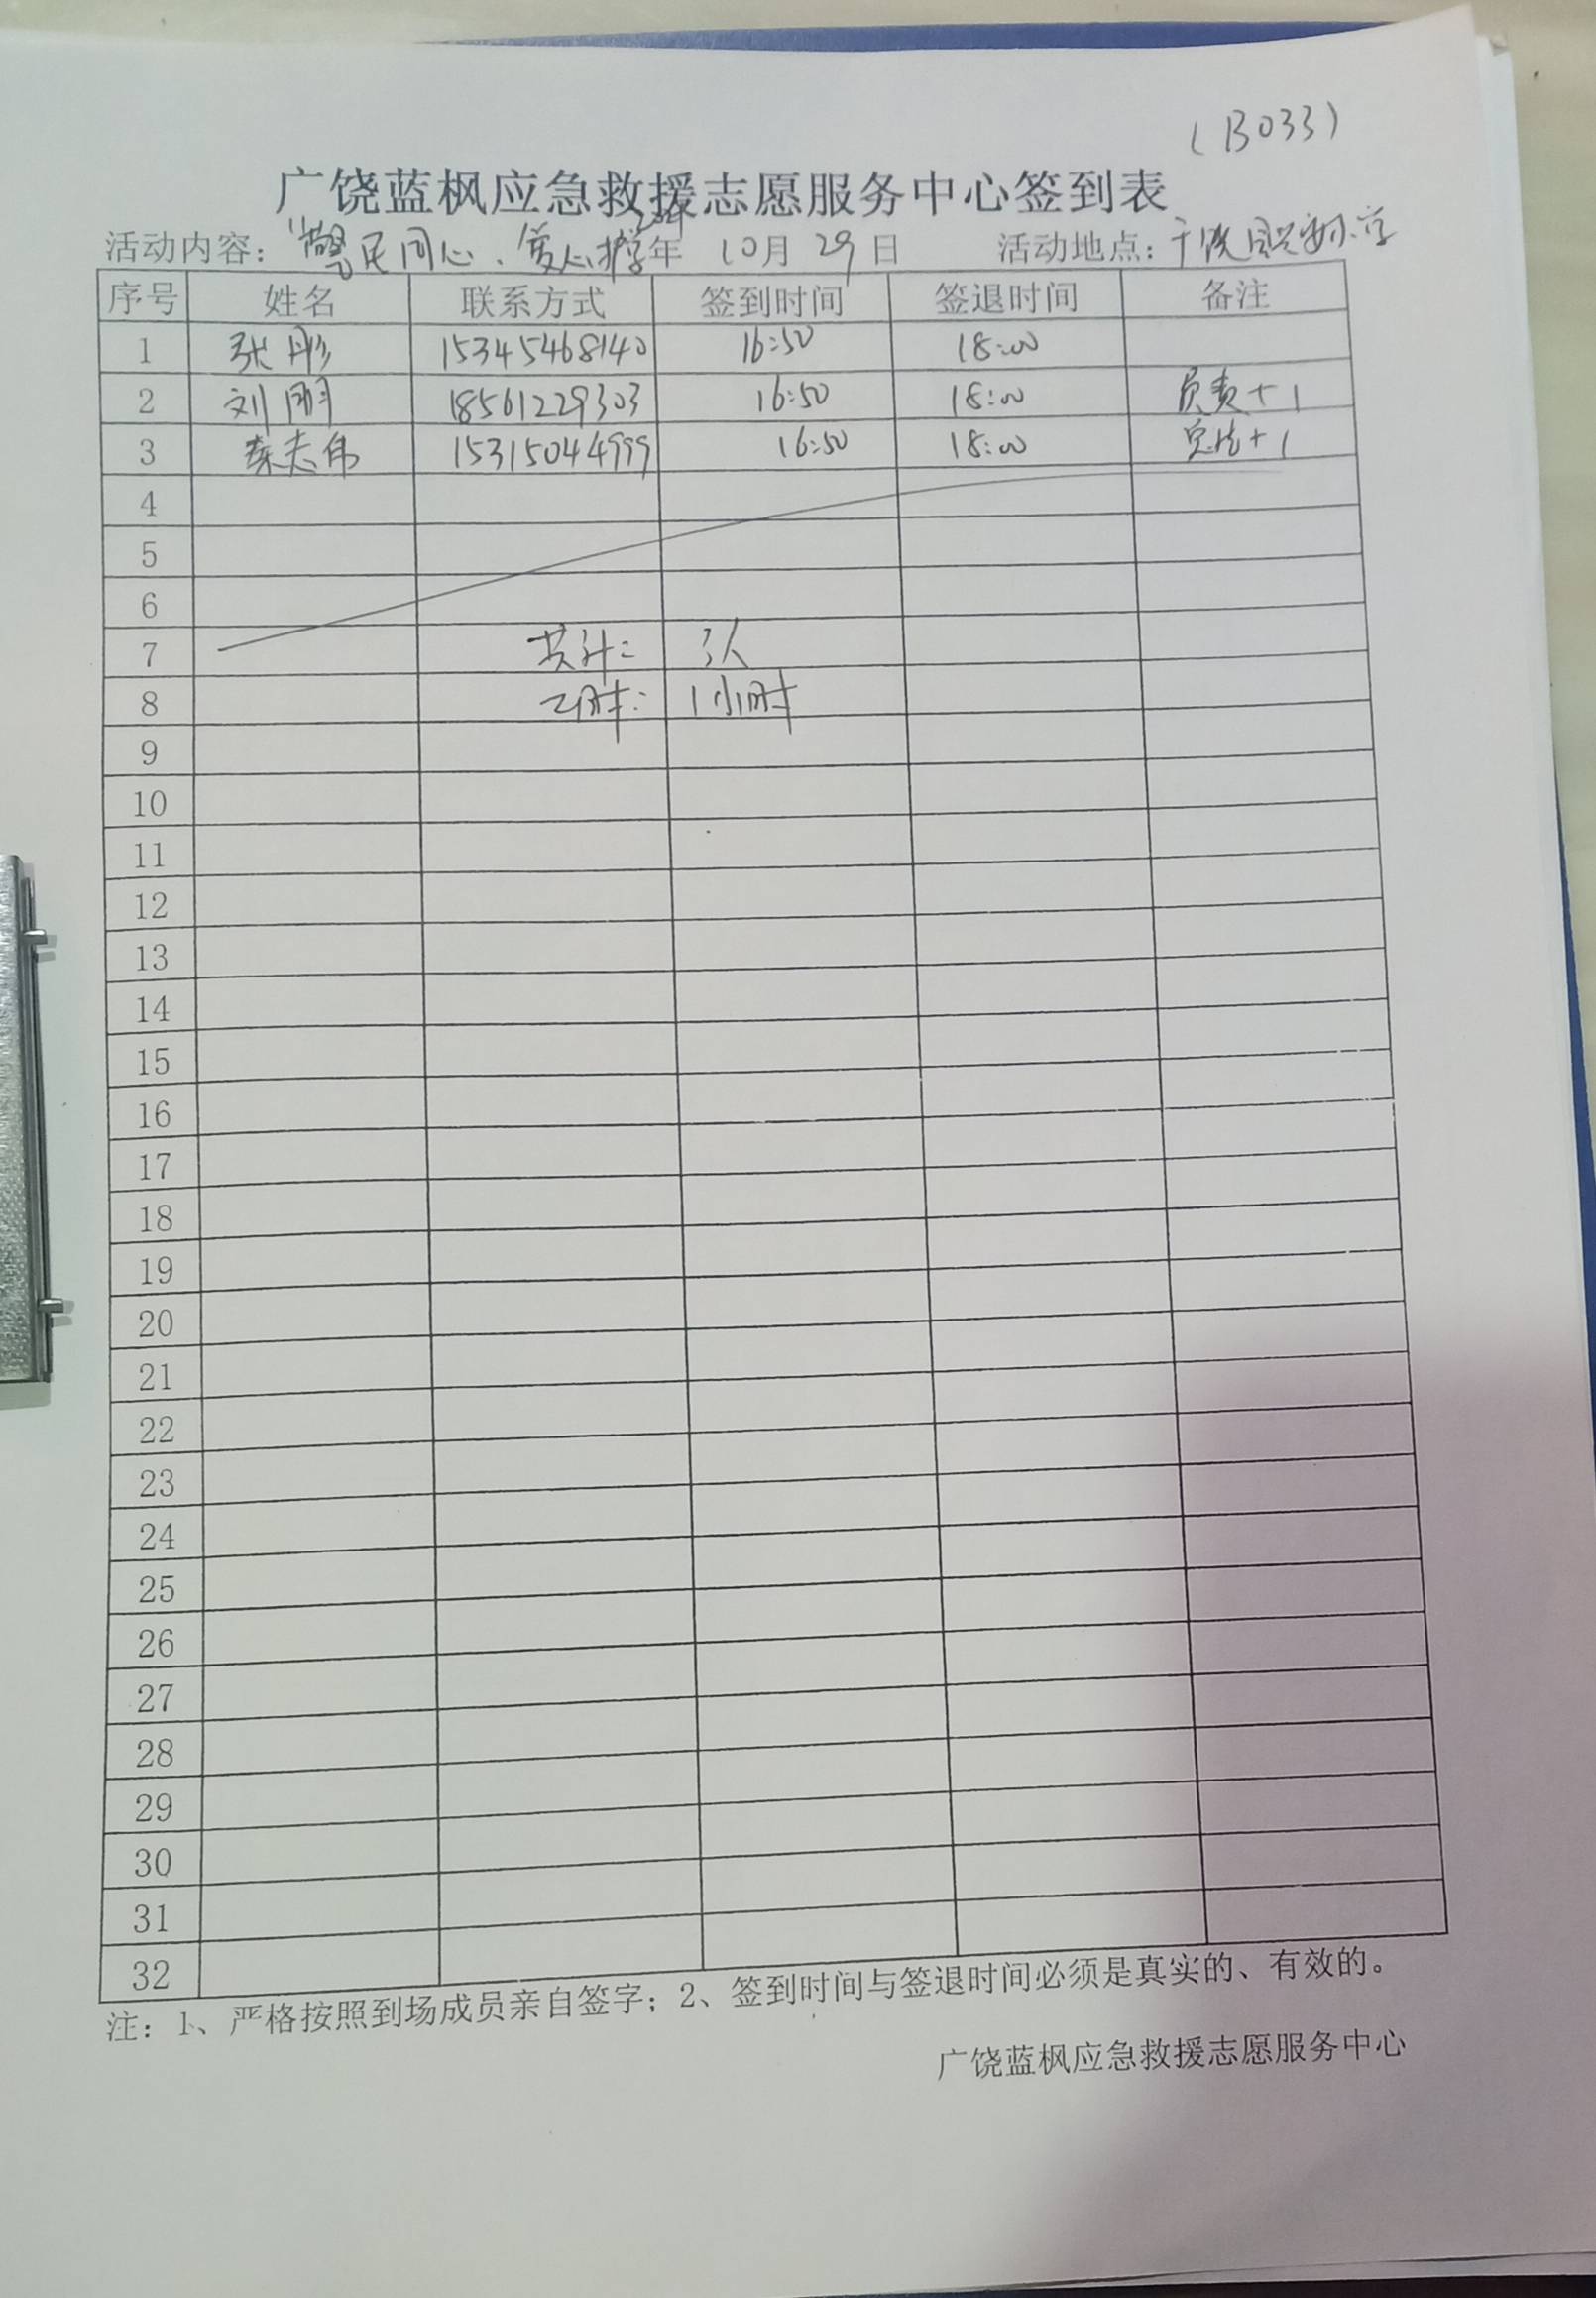 (B033)
广饶蓝枫应急救援志愿服务中心签到表
活动内容：“警民同心、爱心护学 年 10月 29日 活动地点：小学
序号 姓名 联系方式 签到时间 签退时间 备注
1 张彤 15345468140 16:50 18:00
2 刘朋 18561229303 16:50 18:00 负责+1
3 秦志伟 15315044999 16:50 18:00 +1
4
5
6
7 共计： 3人
8 工时： 1小时
9
10
11
12
13
14
15
16
17
18
19
20
21
22
23
24
25
26
27
28
29
30
31
32
注：1、严格按照到场成员亲自签字；2、签到时间与签退时间必须是真实的、有效的。
广饶蓝枫应急救援志愿服务中心